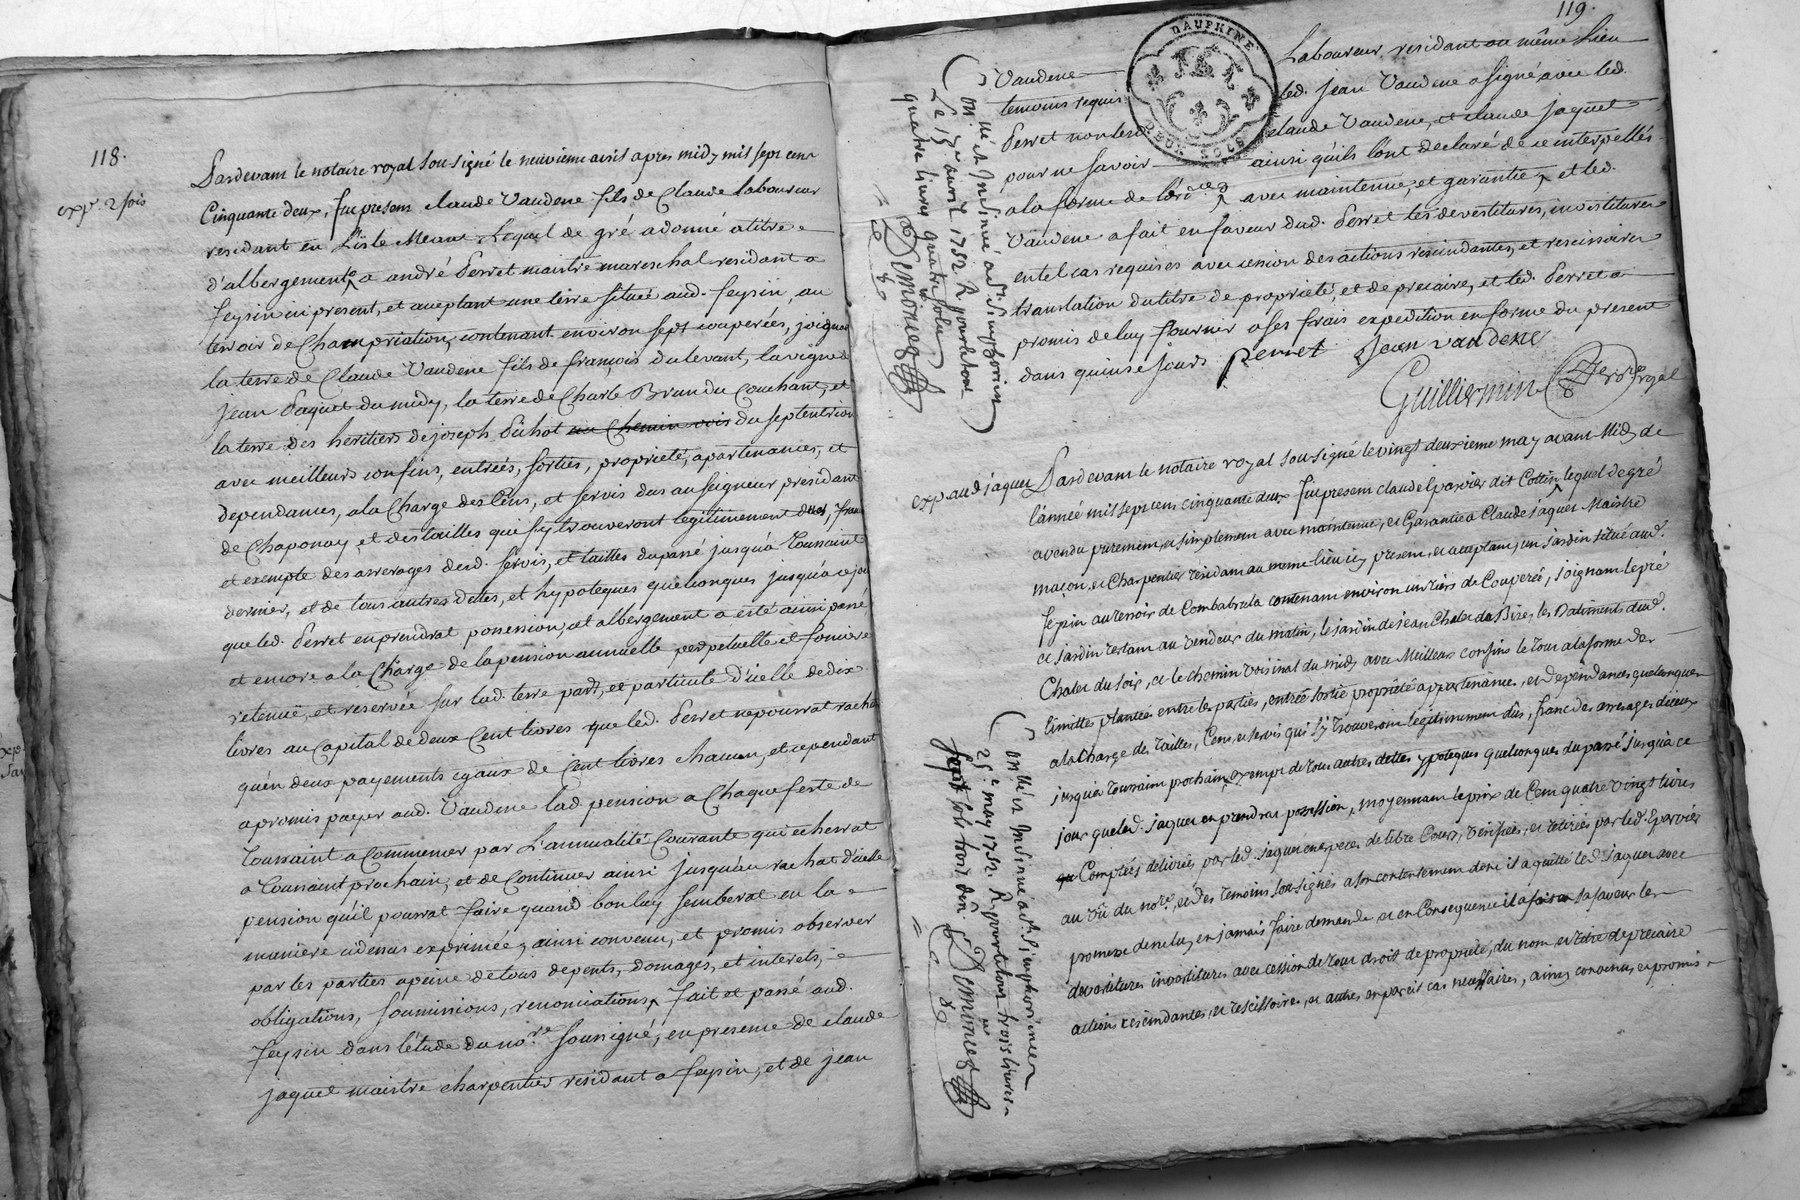 118.
expé. 2 fois
Pardevant le notaire royal sousigné le neuvieme avril apres midy mil sept cens
Cinquante deux, fut presens claude Vaudene fils de Claude laboureur
residant en L'isle Meane Lequel de gré a donné a titre
d'albergement a andré Perret maistre mareschal residant a
feysin icy present, et aceptant une terre située aud. feysin, au
terroir de Champriation, contenant environ sept couperées, joignant
la terre de Claude Vaudene fils de françois du levant, la vigne de
Jean Paquet du midy, la terre de Charle Brun du Couchant, et
la terre des heritiers de joseph Pithot au Chemin vois du septentrion
avec meilleurs confins, entrées, sorties, proprieté, apartenances, et
dependances, a la Charge des Cens, et servis dus au seigneur president
de Chaponay, et des tailles qui s'y trouveront legitimement dues, franc
et exempte des arrerages desd. servis, et tailles du passé jusqu'a Toussaint
dernier, et de tous autres dettes, et hypoteques quelconques jusqu'a ce jour
que led. Perret en prendrat possession, cet albergement a esté ainsi passé
et encore a la Charge de la pension annuelle perpetuelle et fonciere
retenüe, et reservée sur lad. terre part, et particule d'icelle de dix
livres au Capital de deux Cent livres que led. Perret ne pourrat rachet
qu'en deux payements egaux de Cent livres chacun, et cependant
a promis payer aud. Vaudene lad. pension a Chaque feste de
Toussaint a Commencer par L'annualité Courante qui echerrat
a Toussaint prochain, et de Continuer ainsi jusqu'au rachat d'icelle
pension qu'il pourrat faire quand bon luy semblerat en la
maniere cidessus exprimée, ainsi convenu, et promis observer
par les parties a peine de tous depents, domages, et interets,
obligations, soumissions, renonciations, fait et passé aud.
feysin dans l'étude du no.re sousigné, en presence de claude
jaquet maistre charpentier residant a feysin, et de jean
119.
Vaudene Laboureur residant au même Lieu
temoins requis led. Jean Vaudene a signé avec led.
Perret non led. claude Vaudene, et claude jaquet
pour ne savoir ainsi qu'ils l'ont declaré de ce interpellés
a la forme de l'ord.ce avec maintenue, et garantie, et led.
Vaudene a fait en faveur dud. Perret les devestitures, investitures
en tel cas requises avec cession des actions rescindantes, et rescisoires
translation du titre de proprieté, et de precaire, et led. Perret a
promis de luy fournir a ses frais expedition en forme du present
dans quinse jours Perret Jean vaudene
Guilliermin No.re royal
Con.lé et Insinué a St. Simphorien
Le 15e avril 1752. R pour le tout
quatre livres quatre sols
Demonen
exp. aud jaquet
Pardevant le notaire royal sousigné le vingt deuxieme may avant Midy de
l'année mil sept cens cinquante deux fut presens claude Eparvier dit Cottin lequel de gré
a vendu purement, et simplement avec maintenue, et Garantie a Claude jaquet Maistre
maçon, et Charpentier residant au meme lieu icy present, et aceptant, un jardin situé aud.
feysin au terroir de Combabrula contenant environ un tiers de Couperée, joignant le pré
et jardin restant au vendeur du matin, le jardin de jean Chater du Bise, les Batiments dud.
Chater du soir, et le chemin voisinal du midy avec Meilleurs confins le tout a la forme des
limittes plantées entre les parties, entrée sortie proprieté appartenances, et dependances quelconques
a la Charge des tailles, Cens, et servis qui s'y trouveront legitimement dûs, franc des arrerages d'iceux
jusqu'a Toussaint prochain, exempt de tous autres dettes ypoteques quelconques du passé jusqu'a ce
jour que led. jaquet en prendrat possession, moyennant le prix de Cent quatre vingt livres
Comptées delivrées par led. jaquet en especes de libre Cours, verifiées, et retirées par led. Eparvier
au vû du no.re, et des temoins sousignés a son contentement dont il a quitté led. jaquet avec
promesse de ne luy en jamais faire demande et en Consequence il a fait en sa faveur les
devestitures investitures avec cession de tout droit de proprieté, du nom, et titre de precaire
actions rescindantes, et rescisoires, et autres en pareil cas necessaires, ainsy convenus, et promis
Con.lé et Insinué a St. Simphorien
25e may 1752. R pour le tout trois livres
sept sols trois den.
Demonen
DAUPHINÉ
DEUX SOLS